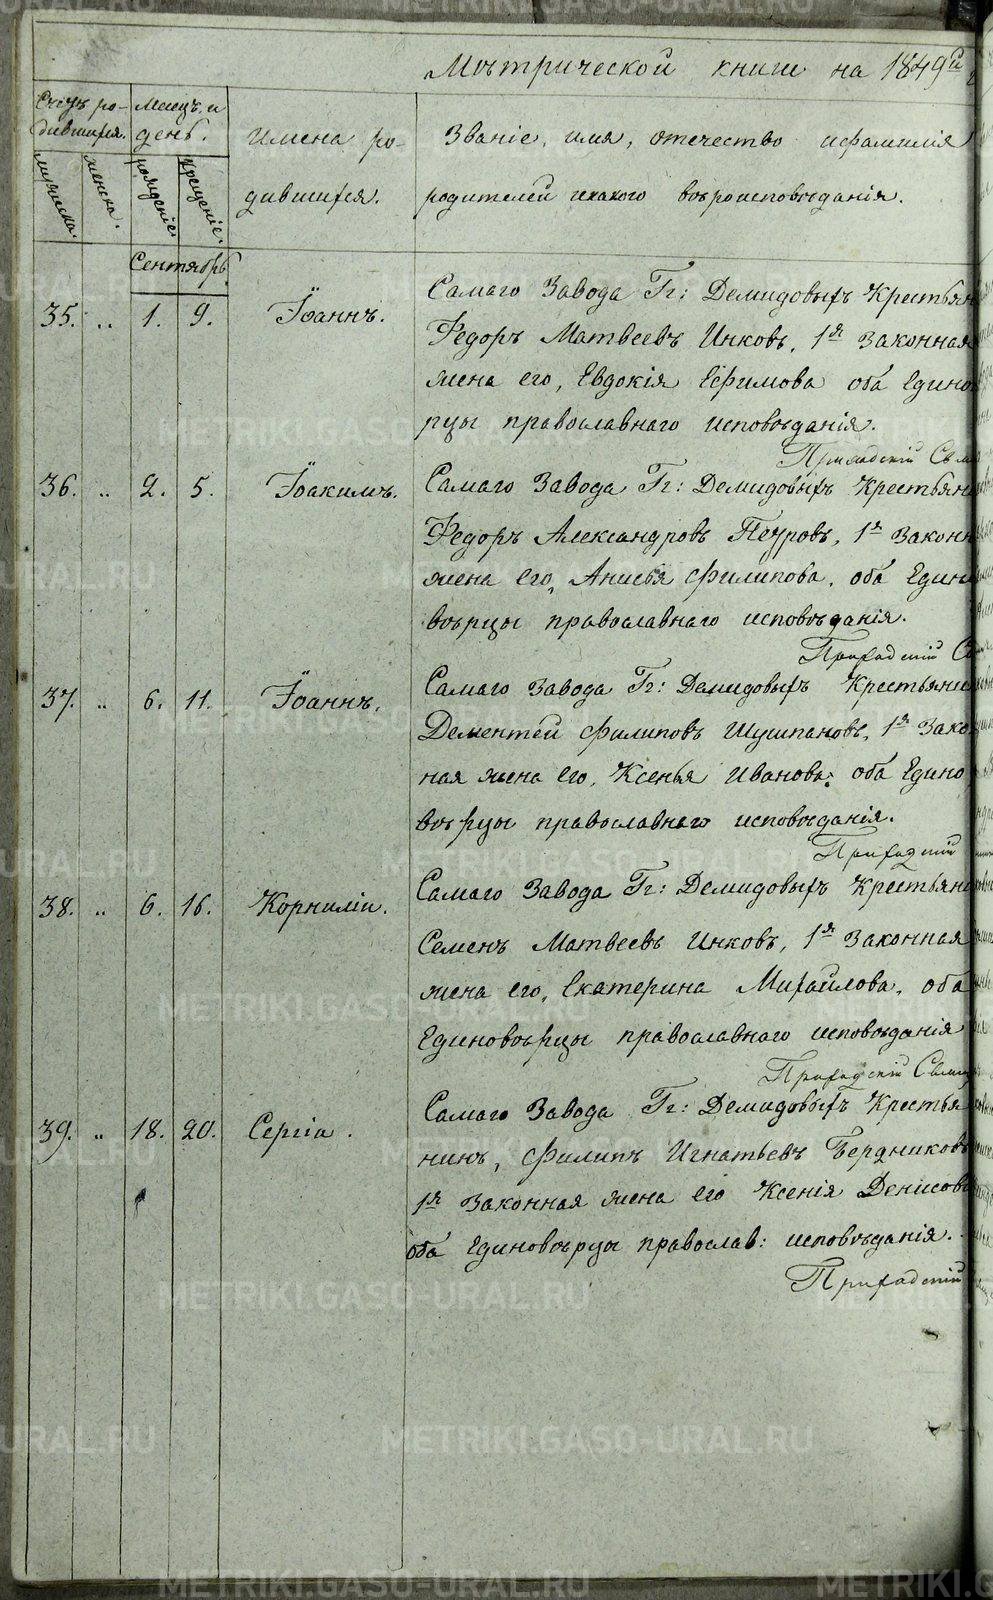 Мѣтрической книги на 1849й
Счетъ ро-
дившихся.
Месецъ и
день.
имена ро-
дившихся.
Званіе, имя, отечество ифамилія
родителей икакого вѣроисповѣданія.
мужеска.
женска.
рожденіе.
крещеніе.
Сентябрь
35. „ 1. 9. Іоаннъ.
Самаго Завода Гг: Демидовыхъ Крестьян
Федоръ Матвеевъ Инковъ, 1я Законная
жена его, Евдокія Ефимова оба Едино
рцы православнаго исповѣданія.
Приходскій Свящ
36. „ 2. 5. Іоакимъ.
Самаго Завода Гг: Демидовыхъ Крестьян
Федоръ Александровъ Петровъ, 1я Законн
жена его, Анисья Филипова, оба Един
вѣрцы православнаго исповѣданія.
Приходскій С
37. „ 6. 11. Іоаннъ.
Самаго Завода Гг: Демидовыхъ Крестьяни
Дементей Филиповъ Шушпановъ, 1я Зако
ная жена его, Ксенья Иванова; оба Едино
вѣрцы православнаго исповѣданія.
Приходскій
38. „ 6. 16. Корниліи.
Самаго Завода Гг: Демидовыхъ Крестьяни
Семенъ Матвеевъ Инковъ, 1я Законная
жена его, Екатерина Михайлова, оба
Единовѣрцы православнаго исповѣданія
Приходскій Свящ
39. „ 18. 20. Сергіа.
Самаго Завода Гг: Демидовыхъ Крестья
нинъ, Филипъ Игнатьевъ Бердниковъ
1я Законная жена его Ксенія Денисова
оба Единовѣрцы православ: исповѣданія.
Приходскій
METRIKI.GASO-URAL.RU